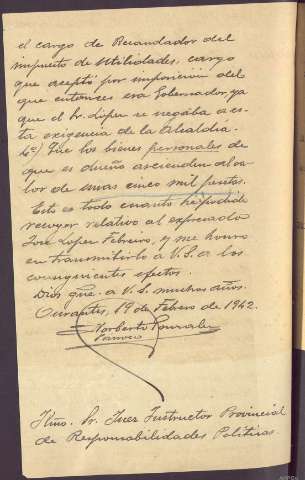 el cargo de Recaudador del
impuesto de Utilidades, cargo
que aceptó por imposición del
que entonces era Gobernador, ya
que el Sr. López se negaba a es-
ta exigencia de la Alcaldia.
6º) Que los bienes personales de
que es dueño ascienden al va-
lor de unas cinco mil pesetas.
Esto es todo cuanto he podido
recoger relativo al expresado
José López Febreiro, y me honro
en transmitirlo a V.S. a los
consiguientes efectos.
Dios gue. a V.S. muchos años.
19 de Febrero de 1942.
Norberto González
Párroco
Iltmo. Sr. Juez Instructor Provincial
de Responsabilidades Políticas